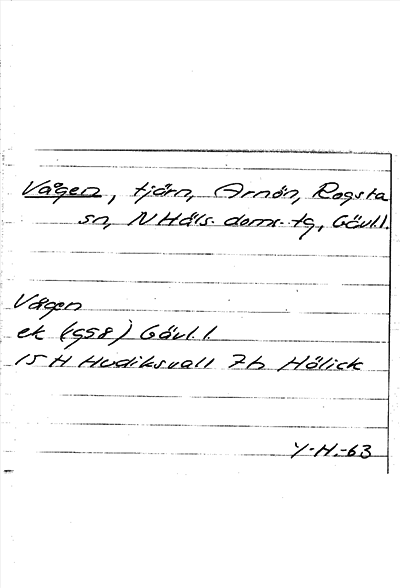 Vågen, tjärn, Arnön, Rogsta
sn, N Häls. doms.-tg, Gävl.l.
Vågen
ek (1958) Gävl.l.
15 H Hudiksvall 7h Hölick
Y-H.-63